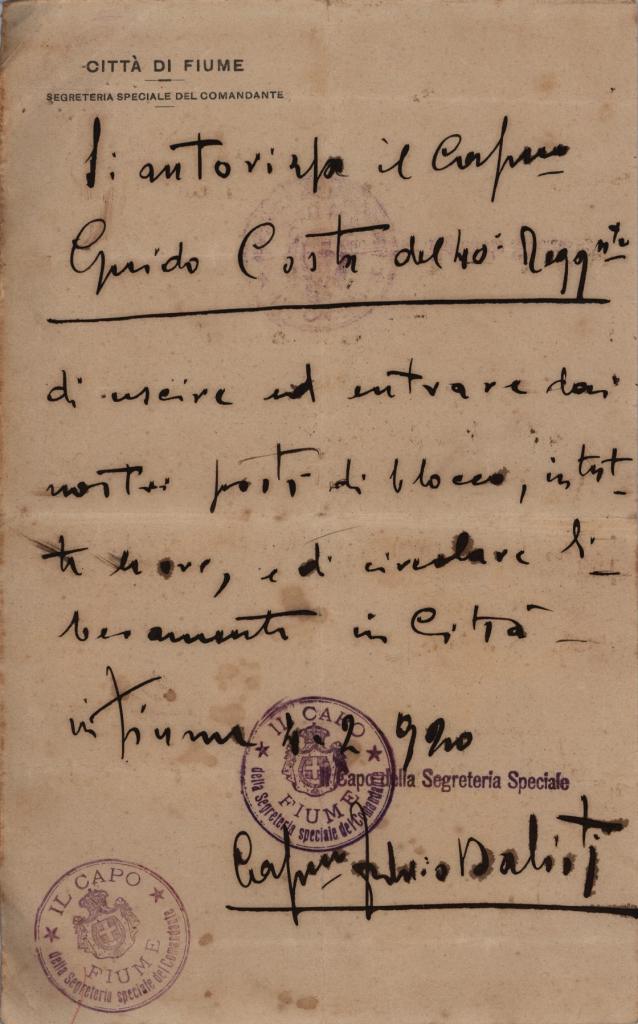 CITTÀ DI FIUME
SEGRETERIA SPECIALE DEL COMANDANTE
Si autorizza il Cap.no
Guido Costa del 40° Regg.nto
di uscire ed entrare dai
nostri posti di blocco, in tut-
te le ore, e di circolare li-
beramente in Città –
in Fiume 4.2 920
IL CAPO
FIUME
della Segreteria speciale del Comandante
Il Capo della Segreteria Speciale
Cap.no
IL CAPO
FIUME
della Segreteria speciale del Comandante